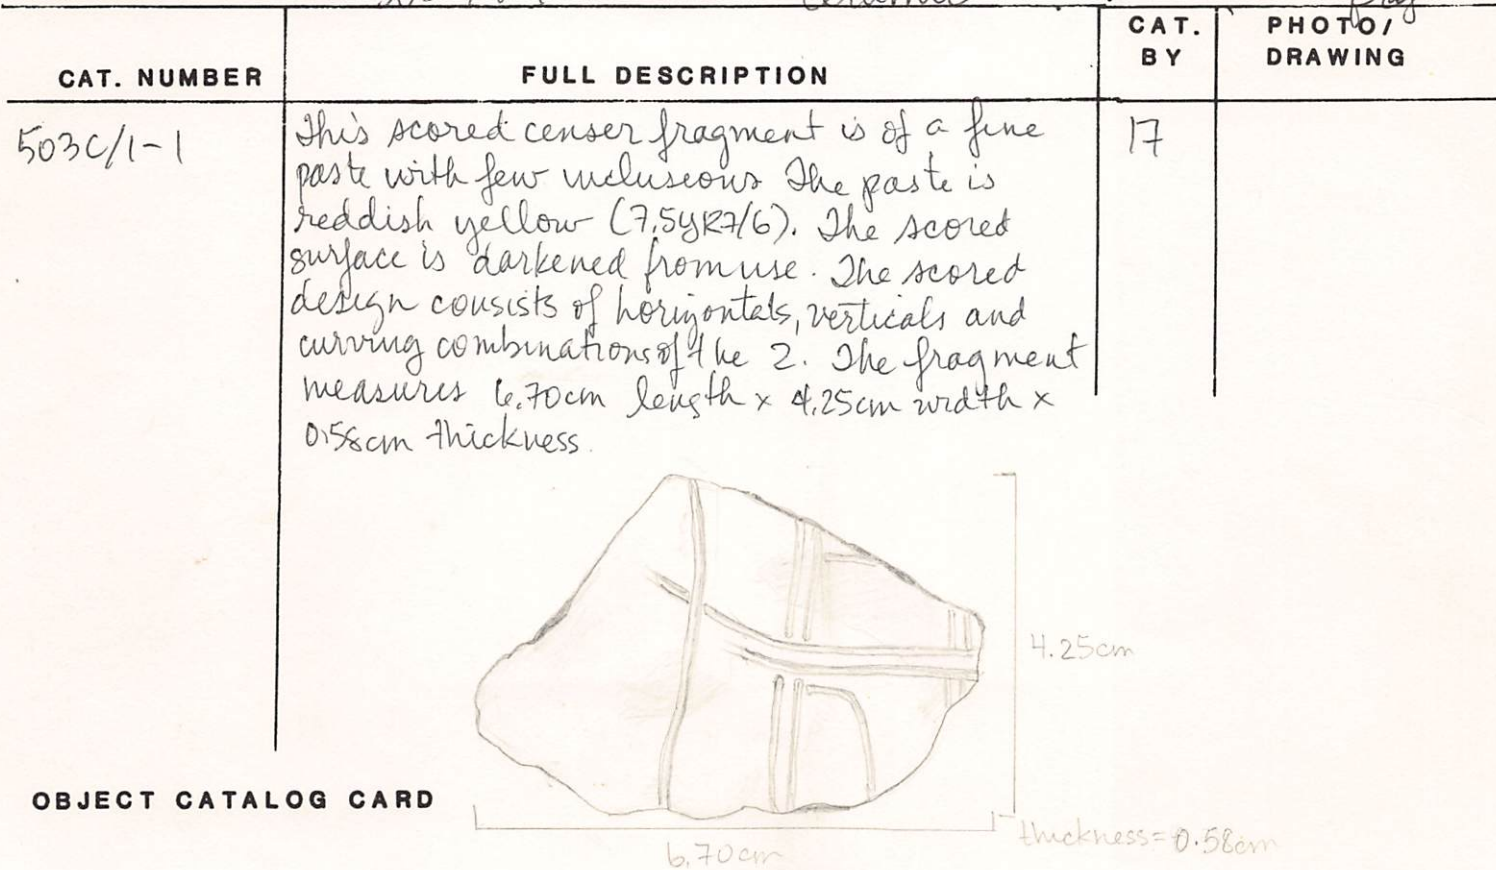 CAT. NUMBER
FULL DESCRIPTION
CAT.
BY
PHOTO/
DRAWING
503C/1-1
This scored censer fragment is of a fine
paste with few inclusions The paste is
reddish yellow (7.5YR7/6). The scored
surface is darkened from use. The scored
design consists of horizontals, verticals and
curving combinations of the 2. The fragment
measures 6.70cm length x 4.25cm width x
0.58cm thickness.
17
4.25cm
OBJECT CATALOG CARD
thickness=0.58cm
6.70cm